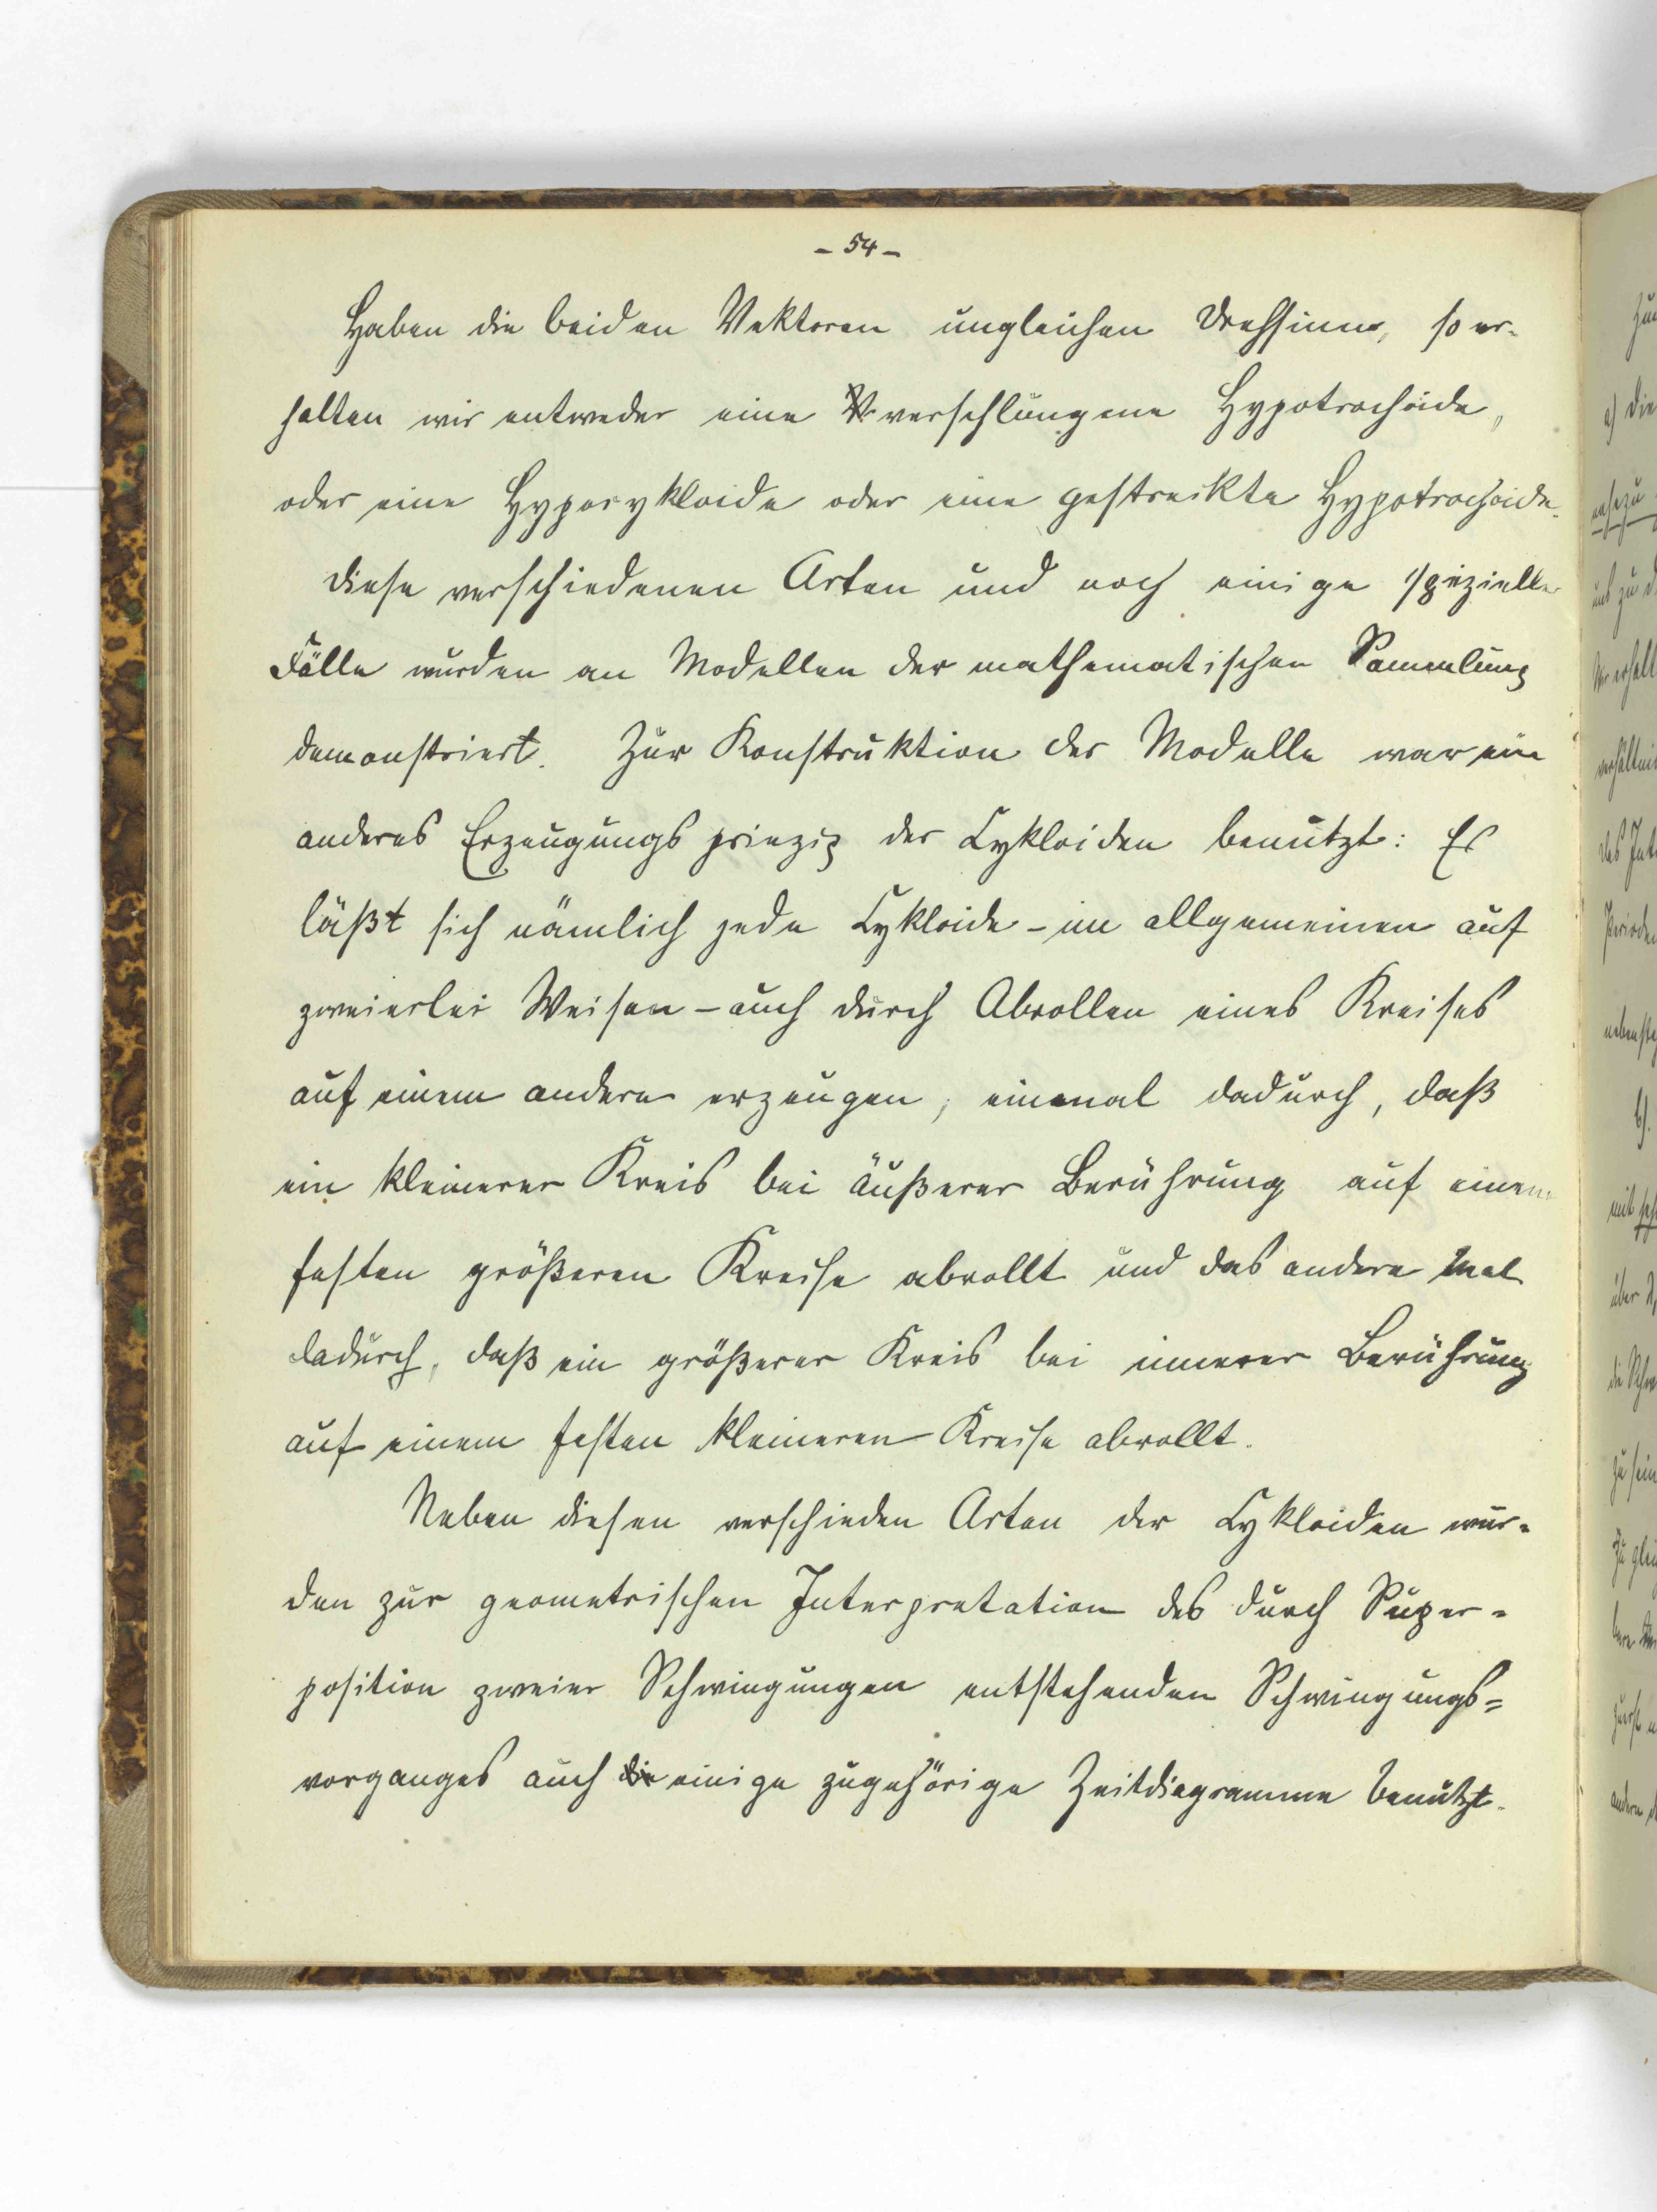 - 54 -
Haben die beiden Vektoren ungleichen Drehsinn, so er-
halten wir entweder eine verschlungene Hypotrochoide,
oder eine Hypozykloide oder eine gestreckte Hypotrochoide.
Diese verschiedenen Arten und noch einige spezielle
Fälle wurden an Modellen der mathematischen Sammlung
demonstriert. Zur Konstruktion der Modelle war ein
anderes Erzeugungsprinzip der Cykloiden benutzt: Es
läßt sich nämlich jede Cykloide - im allgemeinen auf
zweierlei Weisen - auch durch Abrollen eines Kreises
auf einem andern erzeugen, einmal dadurch, daß
ein kleinerer Kreis bei äußerer Berührung auf einem
festen größeren Kreise abrollt und das andere Mal
dadurch, daß ein größerer Kreis bei innerer Berührung
auf einem festen kleineren Kreise abrollt.
Neben diesen verschieden Arten der Cykloiden wur-
den zur geometrischen Interpretation des durch Super-
position zweier Schwingungen entstehenden Schwingungs-
vorganges auch einige zugehörige Zeitdiagramme benutzt.